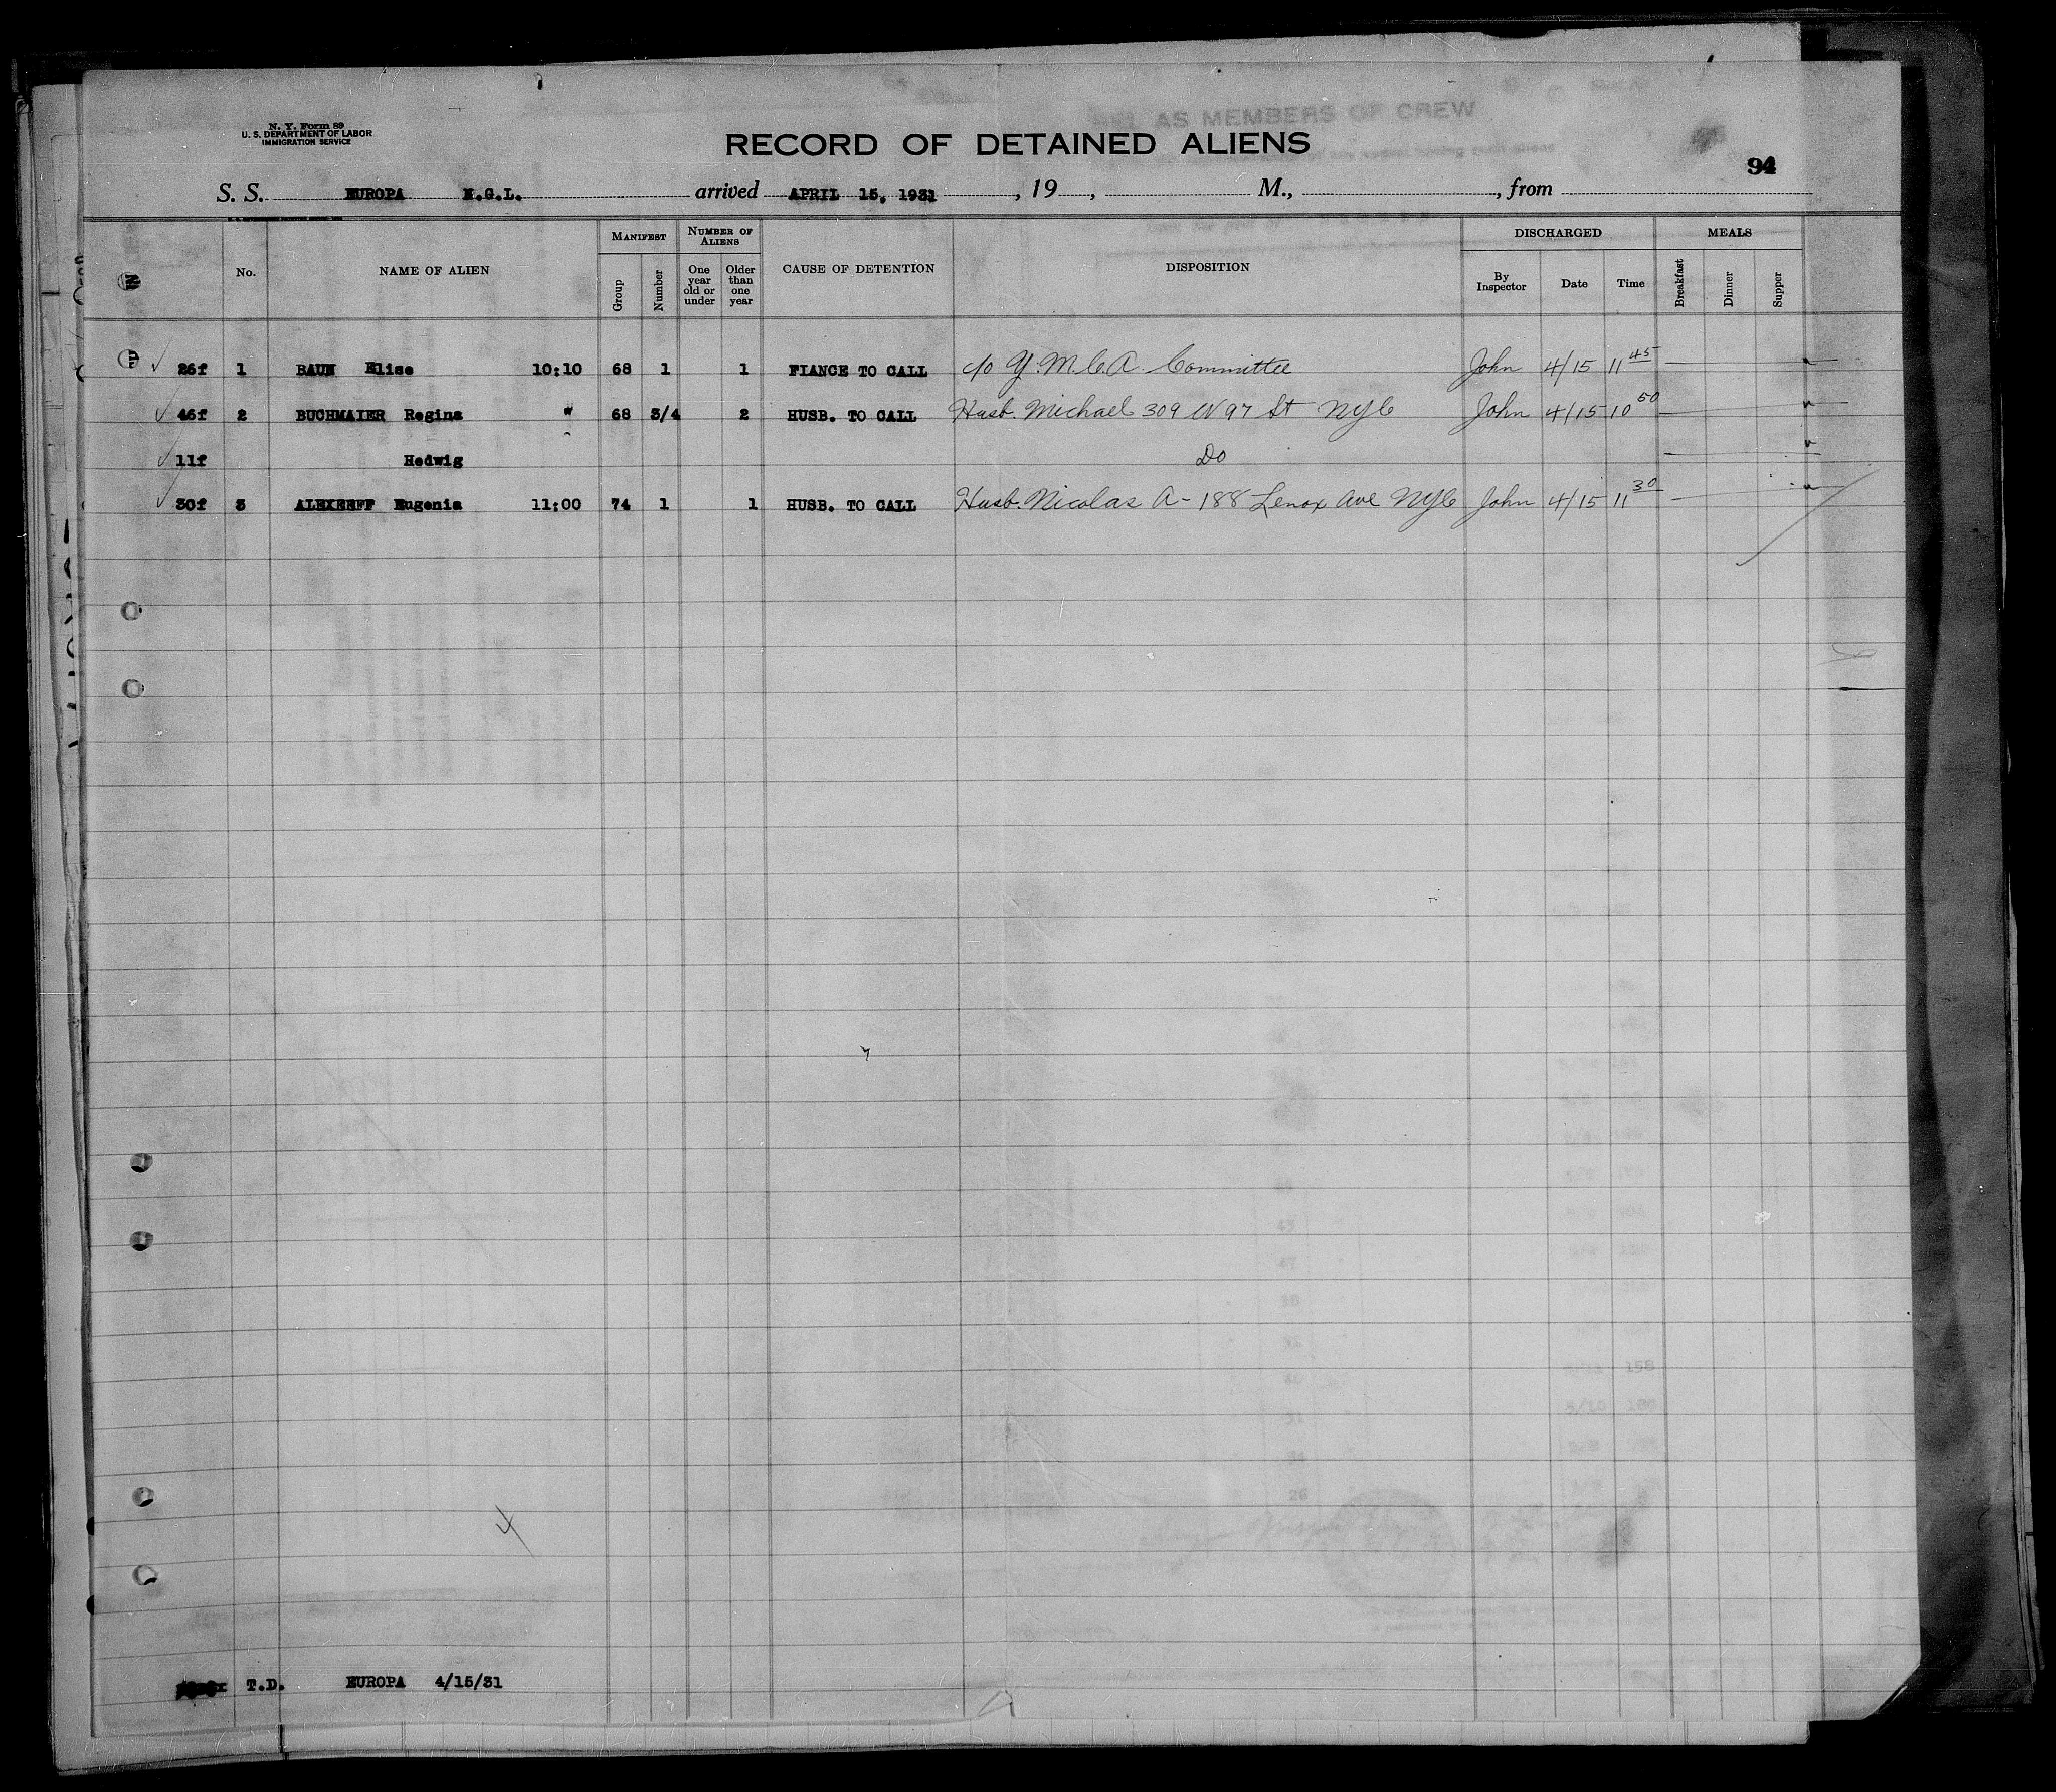 N. Y. Form 89
U. S. DEPARTMENT OF LABOR
IMMIGRATION SERVICE
AS MEMBERS OF CREW
RECORD OF DETAINED ALIENS
94
S. S. EUROPA N.G.L. arrived APRIL 15, 1931, 19, M., , from
No. NAME OF ALIEN MANIFEST Group Number NUMBER OF ALIENS One year old or under Older than one year CAUSE OF DETENTION DISPOSITION DISCHARGED By Inspector Date Time MEALS Breakfast Dinner Supper
26f 1 BAUN Elise 10:10 68 1 1 FIANCE TO CALL c/o Y.M.C.A. Committee John 4/15 11 45
46f 2 BUCHMAIER Regina " 68 3/4 2 HUSB. TO CALL Husb. Michael 309 W 97 St NYC John 4/15 10 50
11f Hedwig Do
30f 3 ALEXEEFF Eugenia 11:00 74 1 1 HUSB. TO CALL Husb. Nicolas A - 188 Lenox Ave NYC John 4/15 11 30
4
T.D. EUROPA 4/15/31